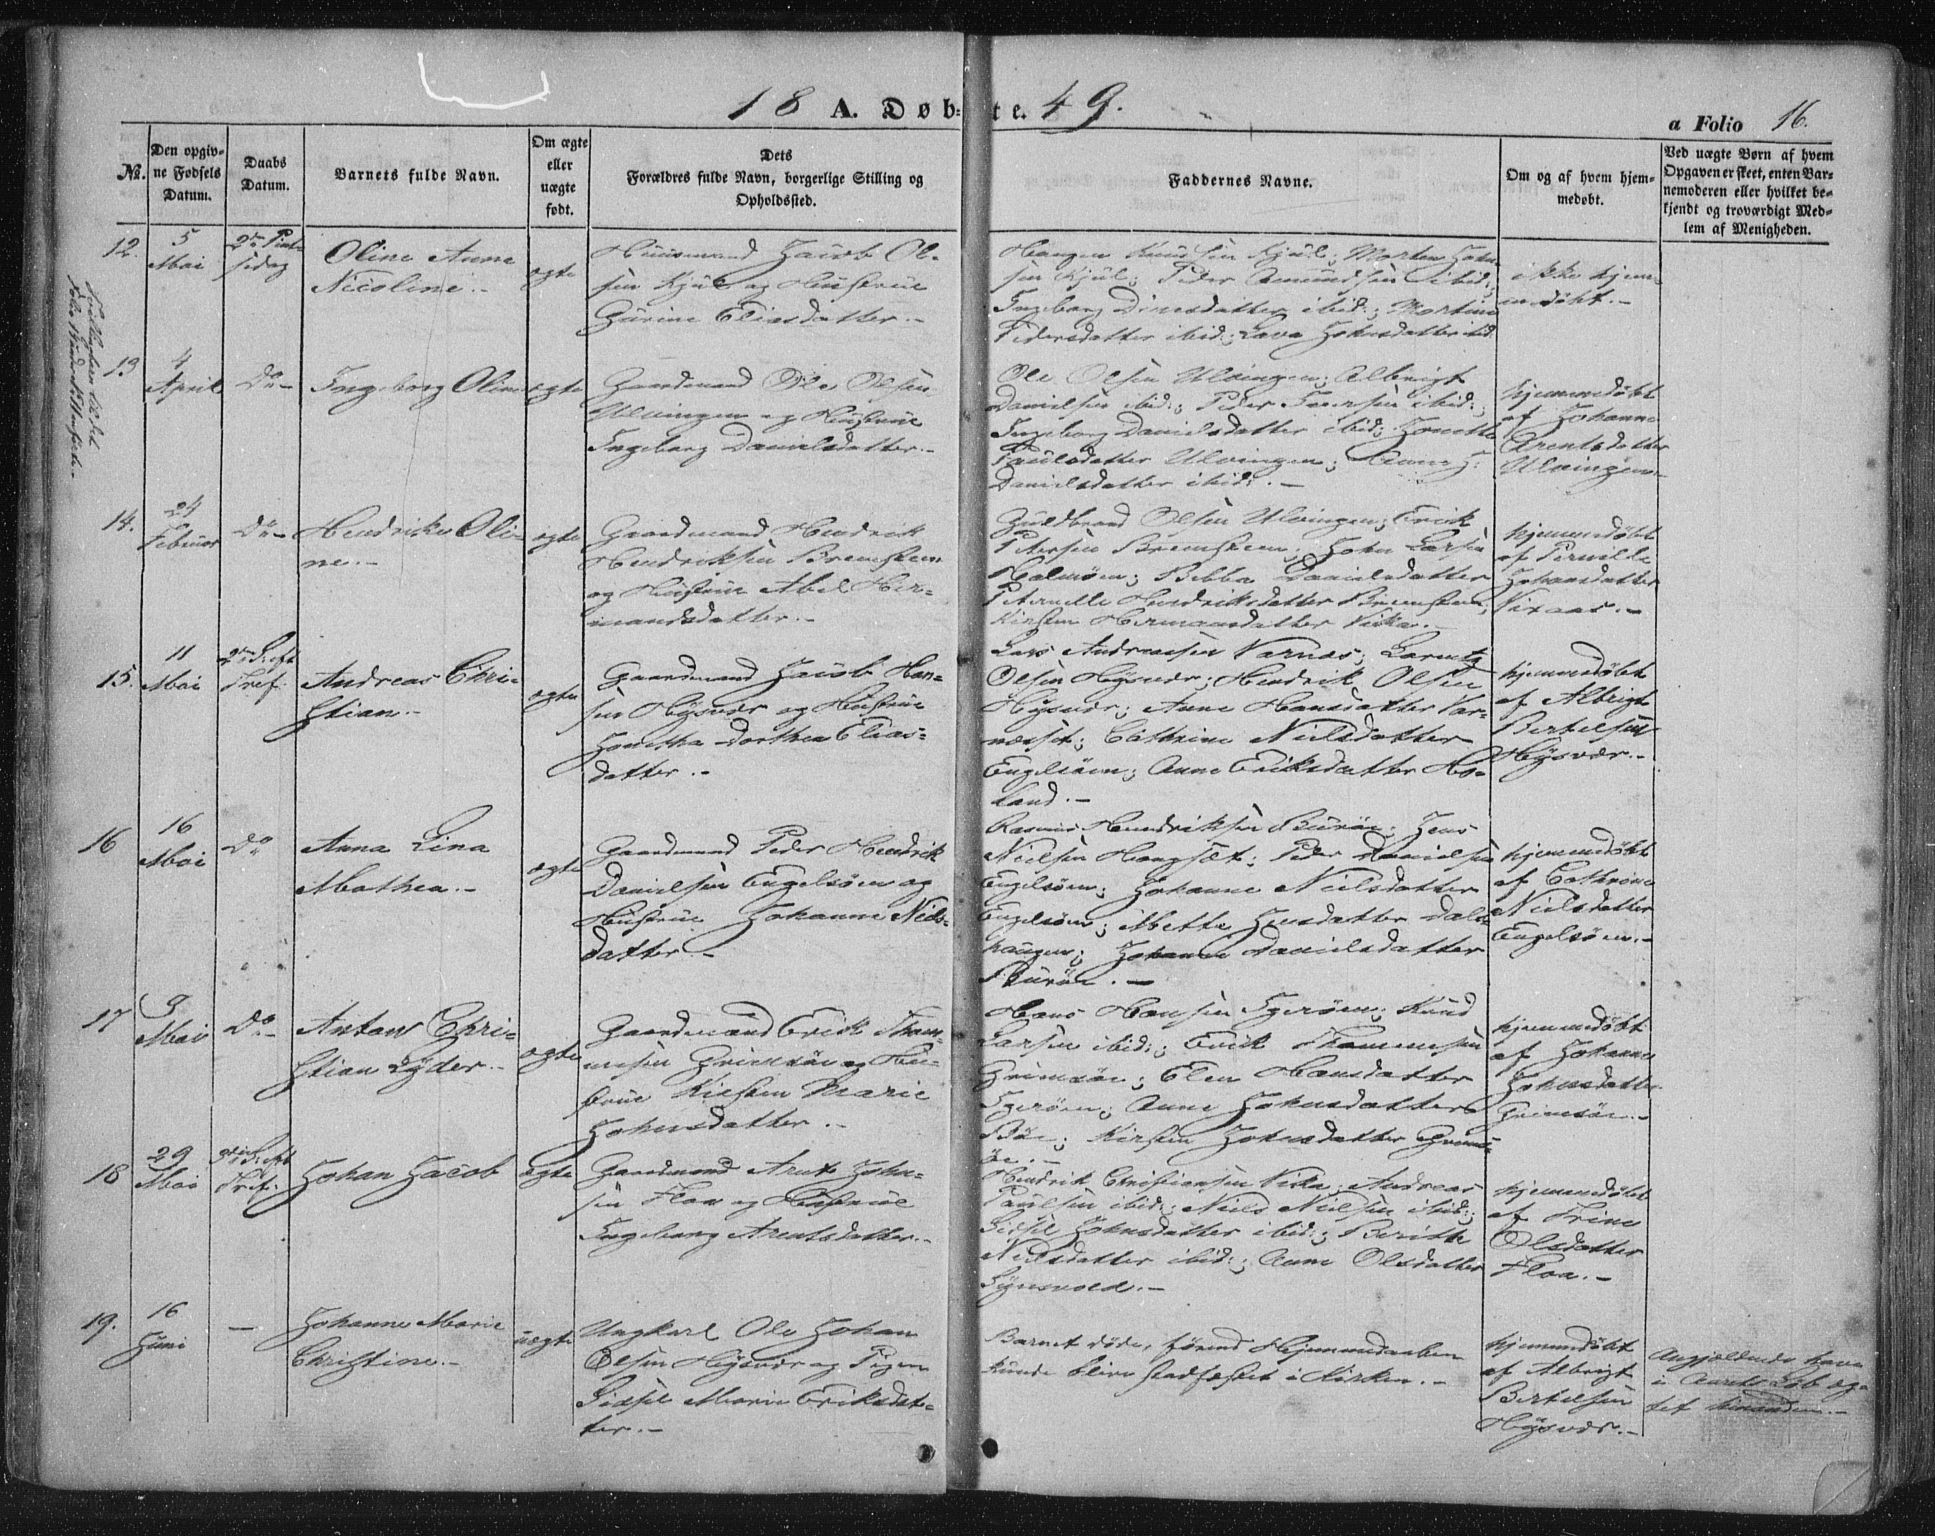 18 A. Døb-te. 49.
a Folio 16.
No.
Den opgiv-
ne Fødsels
Datum.
Daabs
Datum.
Barnets fulde Navn.
Om ægte
eller
uægte
født.
Dets
Forældres fulde Navn, borgerlige Stilling og
Opholdssted.
Faddernes Navne.
Om og af hvem hjem-
medøbt.
Ved uægte Børn af hvem
Opgaven er skeet, enten Bar-
nemoderen eller hvilket be-
kjendt og troværdigt Med-
lem af Menigheden.
12.
5
Mai
2den Pint-
sedag
Oline Anne
Nicoline.-
ægte
Huusmand Jacob Ol-
sen Kjul og Hustrue
Gurine Eliasdatter.-
Haagen Knudsen Kjul; Morten John-
sen Kjul; Peder Amundsen ibid;
Ingeborg Dinesdatter ibid:; Martine
Pedersdatter ibid; Lava Johnsdatter ibid
ikke hjem-
medøbt.-
13
4
April
Do-
Ingeborg Oline
ægte
Gaardmand Ole Olsen
Ulvingen og Hustrue
Ingeborg Danielsdatter.-
Ole Olsen Ulvingen; Albrigt
Danielsen ibid:; Peder Iversen ibid:;
Ingeborg Danielsdatter ibid; Jonetta
Paulsdatter Ulvingen; Anne J:
Danielsdatter ibid:.-
hjemmedøbt
af Johanne
Arentsdatter
Ulvingen.-
14.
24
Februar
Do-
Hendrikke Oli-
ne.-
ægte
Gaardmand Hendrik
Hendriksen Bremsteen
og Hustrue Abel Her-
mansdatter.-
Guldbrand Olsen Ulvingen; Erick
Petersen Bremsteen; John Larsen
Halmøen; Bebba Danielsdatter
Peternelle Hendriksdatter Bremsteen;
Kirsten Hermansdatter Vika.-
hjemmedøbt
af Pernille
Johansdatter
15.
11
Mai
2den S: eft
Tref:
Andreas Chri-
stian.-
ægte
Gaardmand Jacob Han-
sen Høysvær og Hustrue
Jonetha Dorthea Elias-
datter.-
Lars Andreassen Varnæs; Larentz
Olsen Høysvær; Hendrik Olsen
Høysvær; Anne Hansdatter Var-
Cathrine Nielsdatter
Engelsøen; Anne Eriksdatter Ho-
land.-
hjemmedøbt
af Albrigt
Bertelsen
Høysvær.-
16
16
Mai
Do
Anna Lina
Mathea.-
ægte
Gaardmand Peder Hendrik
Danielsen Engelsøen og
Hustrue Johanne Niels-
datter.-
Rasmus Hendriksen Burøe; Jens
Nielsen Haugsæt; Peder Danielsen
Engelsøen; Johanne Nielsdatter
Engelsøen; Mette Jensdatter Dals-
haugen; Johanne Danielsdatter
Burøe.-
hjemmedøbt
af Cathrine
Nielsdatter
Engelsøen.-
17
9
Mai
Do-
Anton Chri-
stian Lyder.-
ægte
Gaardmand Erick Thom-
mesen Grimsøe og Hu-
strue Kirsten Marie
Johnsdatter.-
Hans Hansen Igerøen; Knud
Larsen ibid:; Erik Thommesen
Grimsøe; Elen Hansdatter
Igerøen; Anne Johnsdatter
Bøe; Kirsten Johnsdatter Grims-
øe.-
hjemmedøbt
af Johanne
Johnsdatter
Grimsøe.-
18
29
Mai
3die S: eft
Tref:
Johan Jacob
ægte
Gaardmand Arnt John-
sen Floa og Hustrue
Ingeborg Arentsdatter.-
Hendrik Christiansen Vika; Andreas
Paulsen ibid:; Niels Nielsen ibid:;
Sidsel Johnsdatter ibid:; Berithe
Nielsdatter ibid:; Anne Olsdatter
hjemmedøbt
af Trine
Olsdatter
Floa.-
19.
16
Juni
-
Johanne Marie
Christine.-
uægte
Ungkarl Ole Johan
Olsen Høysvær og Pigen
Sidsel Marie Eriksdat-
ter.-
Barnet døde, førend Hjemmedaaben
kunde blive stadfæstet i Kirken.-
hjemmedøbt
af Albrigt
Bertelsen
Høysvær.-
Angjældende have
i Aarets Løb æg-
tet hinanden.-